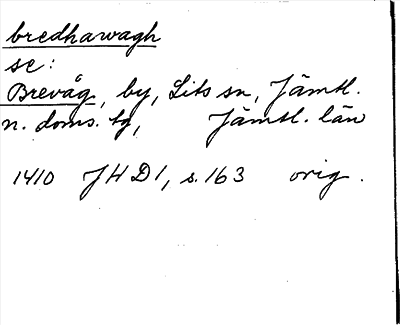 bredhawagh
se:
Brevåg, by, Lits sn, Jämtl.
n. doms. tg, Jämtl. län
1410 JHD1, s. 163 orig.